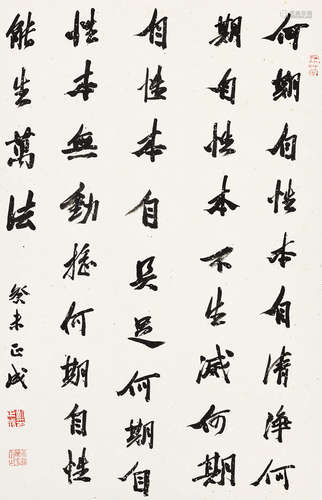 何期自性本自清净何
期自性本不生滅何期
自性本自具足何期自
性本無動摇何期自性
能生萬法
癸未正成